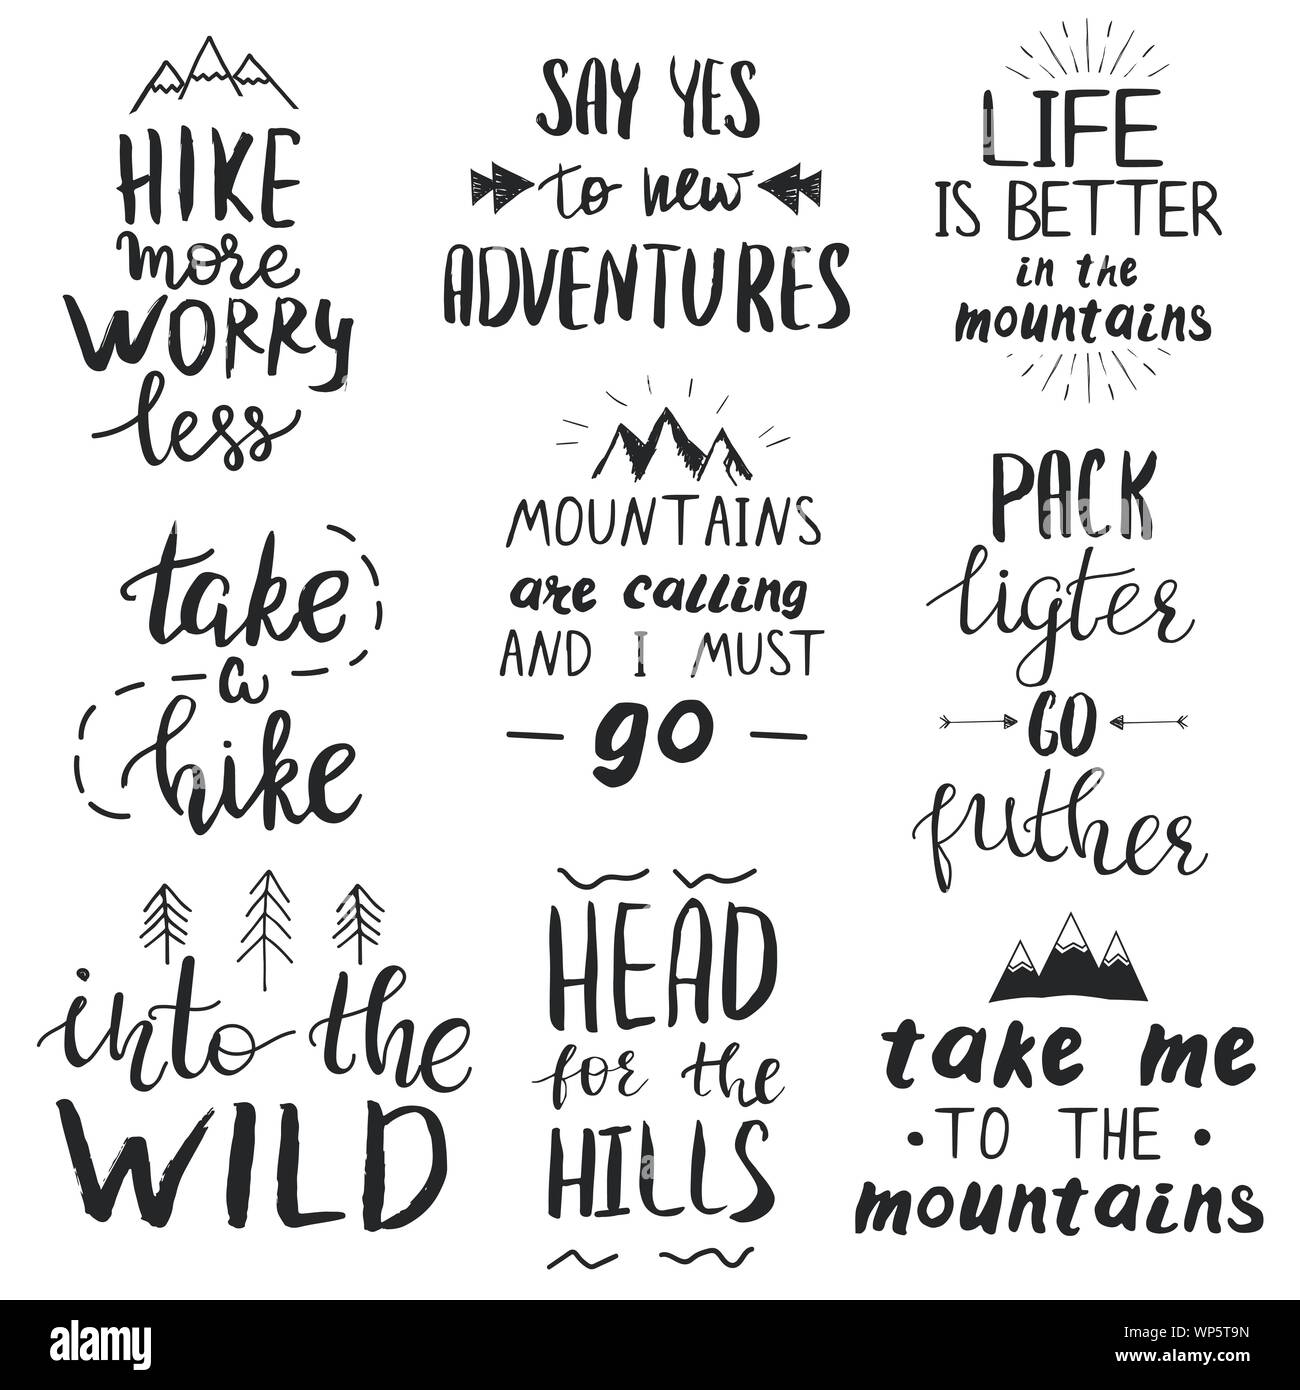 HIKE
more
WORRY
less
SAY YES
to new
ADVENTURES
LIFE
IS BETTER
in the
mountains
take
a
hike
MOUNTAINS
are calling
AND I MUST
go
PACK
ligter
GO
futher
into the
WILD
HEAD
for the
HILLS
take me
TO THE
mountains
alamy
Image ID: WP5T9N
www.alamy.com